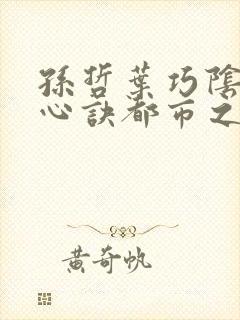 孫哲葉巧陰
心訣都市之
黃奇帆